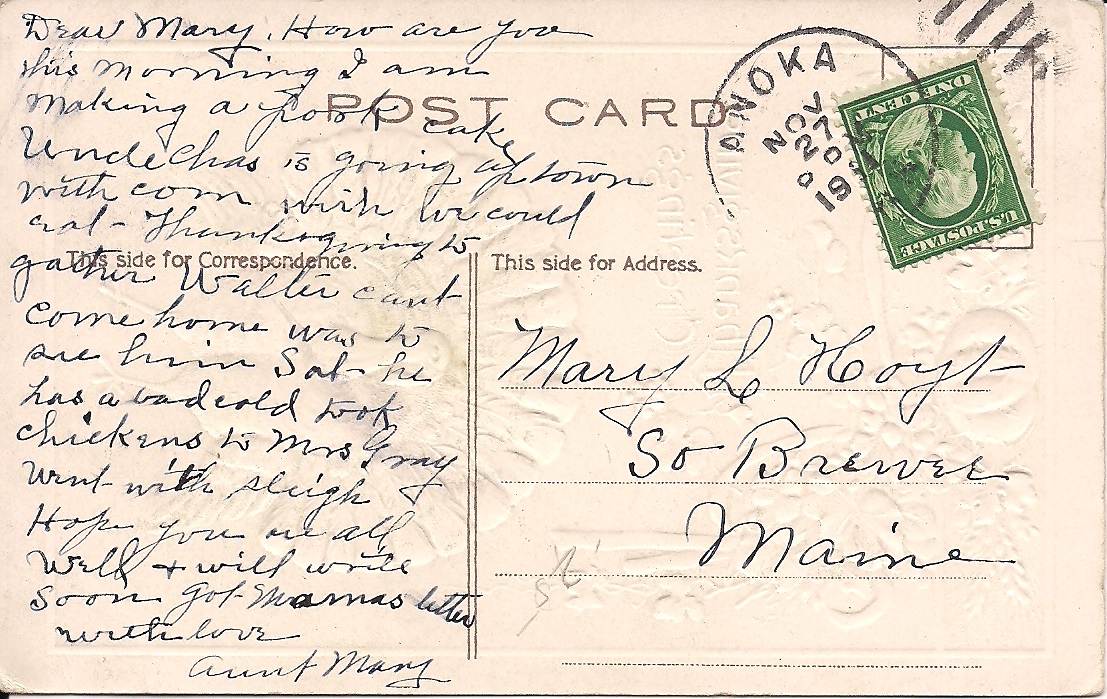 Dear Mary. How are you
this morning I am
making a pork cake
Uncle Chas is going up town
with corn wish we could
eat Thanksgiving to
gather Walter cant
come home was to
see him Sat he
has a bad cold took
chickens to Mrs Gray
went with sleigh
Hope you are all
well + will write
soon got Mamas letter
with love
Aunt Mary
POST CARD
This side for Correspondence.
This side for Address.
ANOKA
NOV
27
19
ONE CENT
U.S. POSTAGE
Mary L Hoyt
So Brewer
Maine